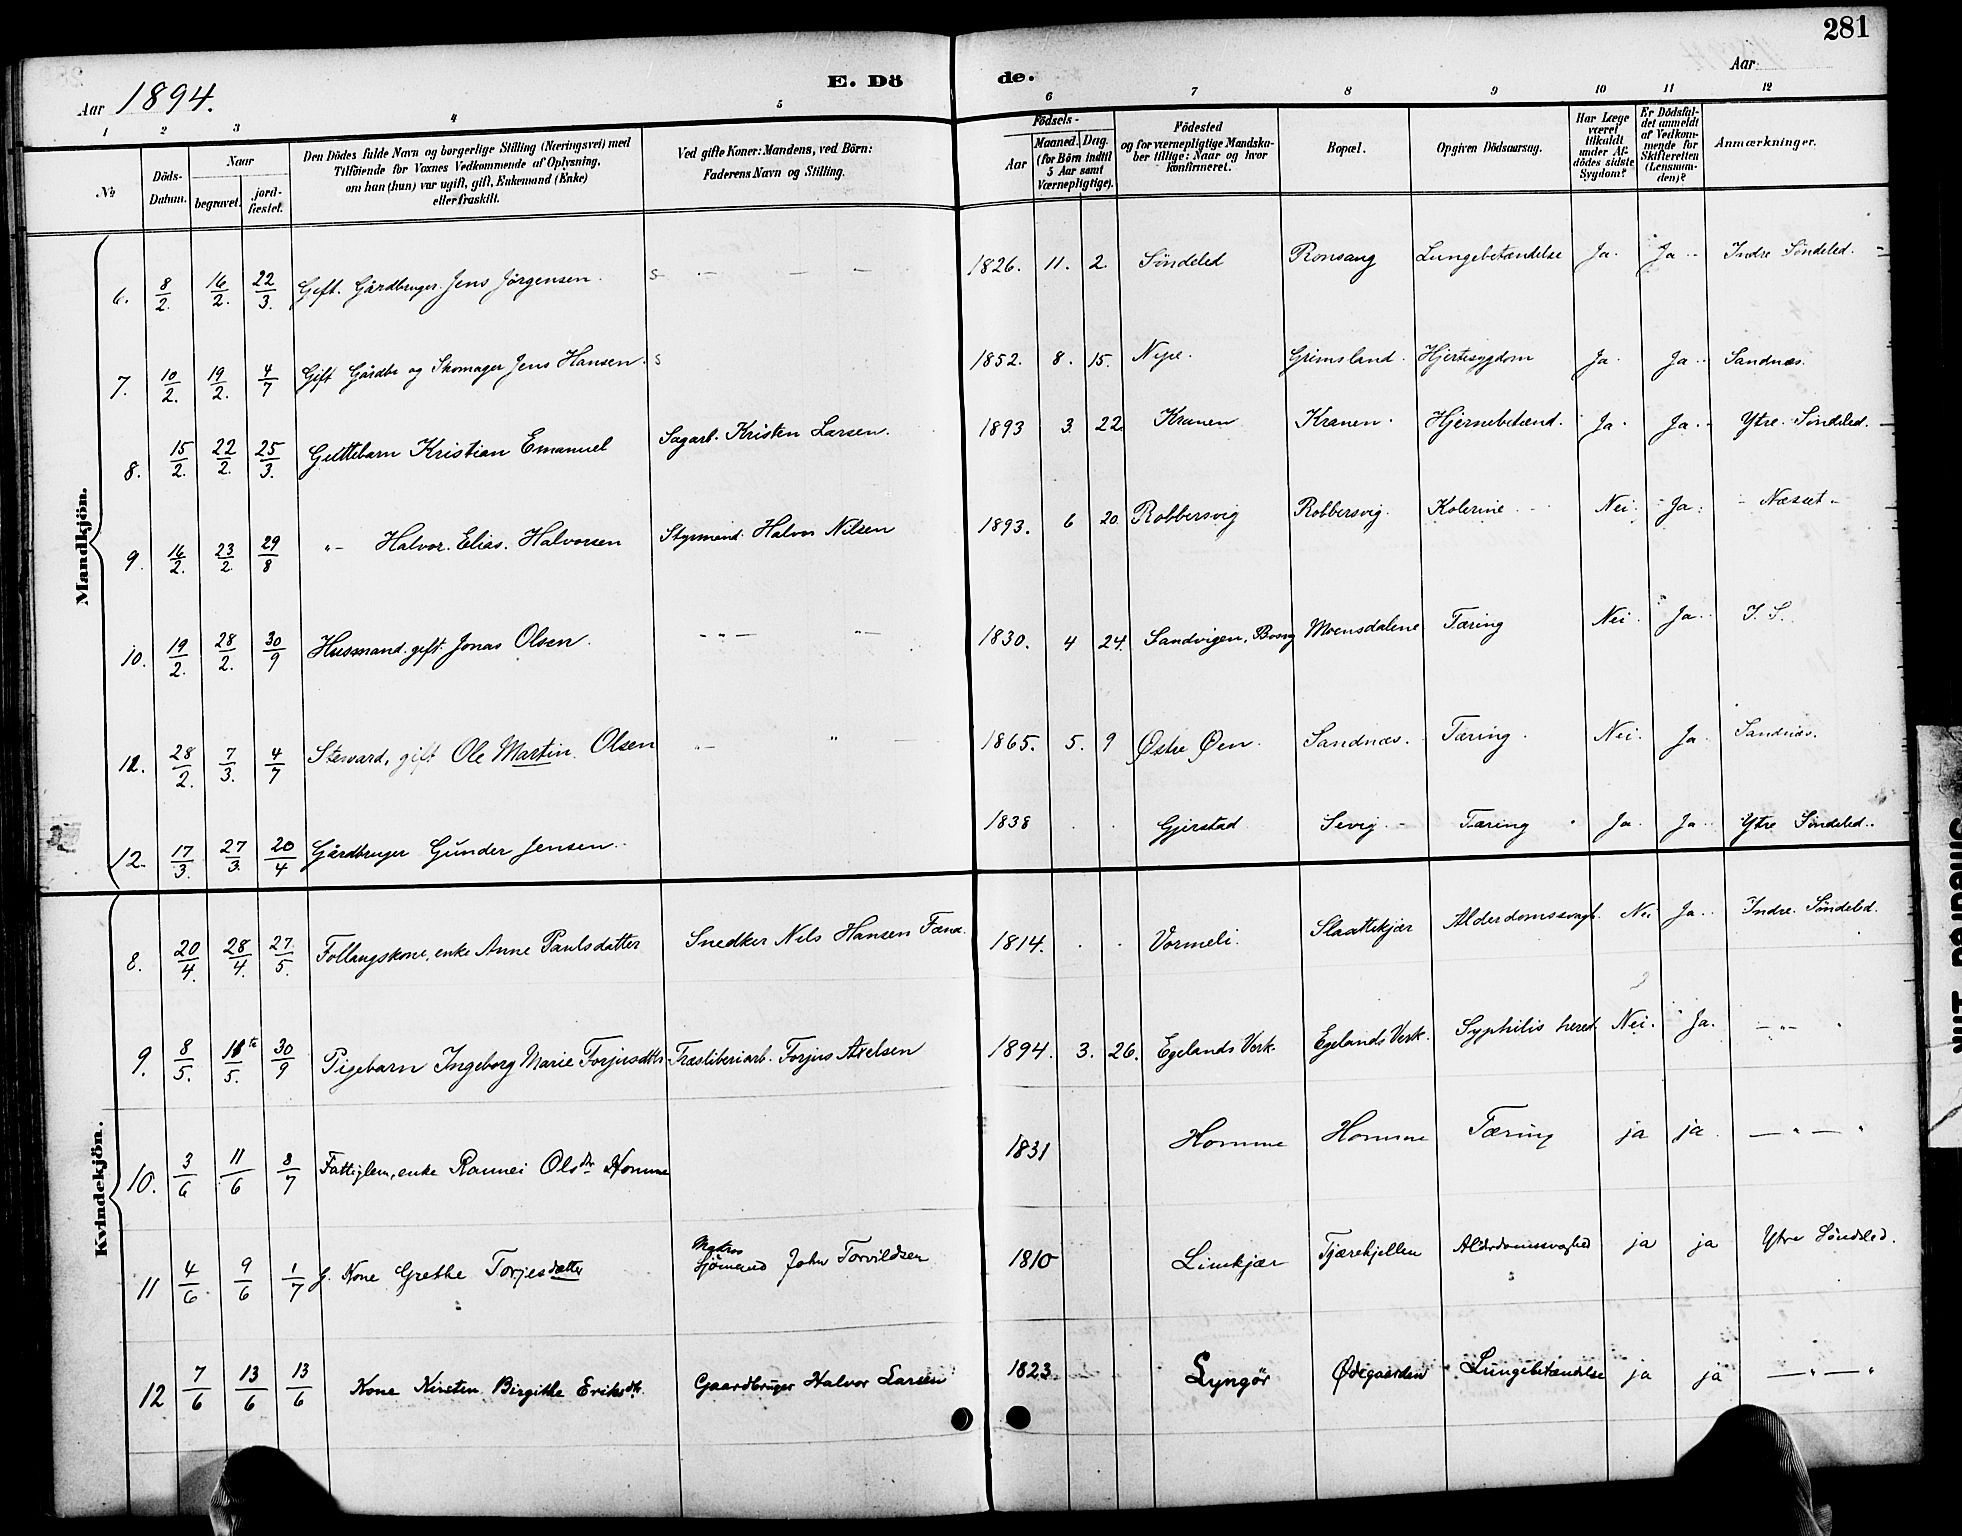 281
Aar 1894. E. Dö de. Aar
1 2 3 4 5 6 7 8 9 10 11 12
No Döds-Datum. Naar begravet. jord-fæstet. Den Dödes fulde Navn og borgerlige Stilling (Næringsvei) med Tilföiende for Voxnes Vedkommende af Oplysning, om han (hun) var ugift, gift, Enkemand (Enke) eller fraskilt. Ved gifte Koner: Mandens, ved Börn: Faderens Navn og Stilling. Födsels- Aar Maaned. Dag. (for Börn indtil 5 Aar samt Værnepligtige). Födested og for værnepligtige Mandskaber tillige: Naar og hvor konfirmeret. Bopæl. Opgiven Dödsaarsag. Har Læge været tilkaldt under Afdödes sidste Sygdom? Er Dödsfaldet anmeldt af Vedkommende for Skifteretten (Lensmanden)? Anmærkninger.
Mandkjön.
6. 8/2. 16/2. 22/3. Gift. Gårdbruger. Jens Jørgensen. 1826. 11. 2. Søndeled Ronsang Lungebetændelse Ja. Ja. Indre Søndeled.
7. 10/2. 19/2. 4/7 Gift Gårdbr og Skomager Jens Hansen. 1852. 8. 15. Nipe. Grimsland. Hjertesygdom Ja. Ja. Sandnæs.
8. 15/2. 22/2. 25/3. Guttebarn Kristian Emanuel Sagarb. Kristen Larsen. 1893 3. 22 Kranen Kranen. Hjernebetænd. Ja. Ja. Ytre Søndeled.
9. 16/2. 23/2. 29/8 "- Halvor. Elias. Halvorsen Styrmand. Halvor Nilsen 1893. 6 20. Robbersvig Robbersvig. Kolerine Nei. Ja. Næset
10. 19/2. 28/2. 30/9 Husmand. gift. Jonas Olsen. 1830. 4 24. Sandvigen, Moensdalene Tæring Nei. Ja. I. S.
11. 28/2. 7/3. 4/7 Steward, gift Ole Martin. Olsen 1865. 5. 9 Østre Øen. Sandnæs. Tæring. Nei. Ja. Sandnæs.
12. 17/3. 27/3. 20/4 Gårdbruger Gunder Jensen. 1838 Gjerstad Sevig. Tæring Ja. Ja. Ytre Søndeled.
Kvindekjön.
8. 20/4. 28/4. 27./5. Follaugskone, enke Anne Paulsdatter Snedker Nils Hansen 1814. Vormeli. Slaattekjær Alderdomssvagh. Nei Ja. Indre. Søndeled.
9. 8/5. 5. 30/9 Pigebarn Ingeborg Marie Torjusdtr. Torjus Axelsen 1894. 3. 26. Egelands Verk. Egelands Verk. Syphilis hered. Nei. Ja. -"-
10. 3/6 11/6 8/7 Fattiglem, enke Rannei Olsdtr Homme 1831 Homme Homme Tæring ja ja - " - "
11 4/6 9/6 1/7 g. Kone Grethe Torjesdatter Matros Sjømand John Torvildsen 1810 Limkjær Tjærekjellen Alderdomssvaghed ja ja Ytre Søndeled.
12 7/6 13/6 13/6 Kone Kirsten Birgitte Eriksdtr. Gaardbruger Halvor Larsen 1823 Lyngør Ødegaarden Lungebetændelse ja ja - " - "